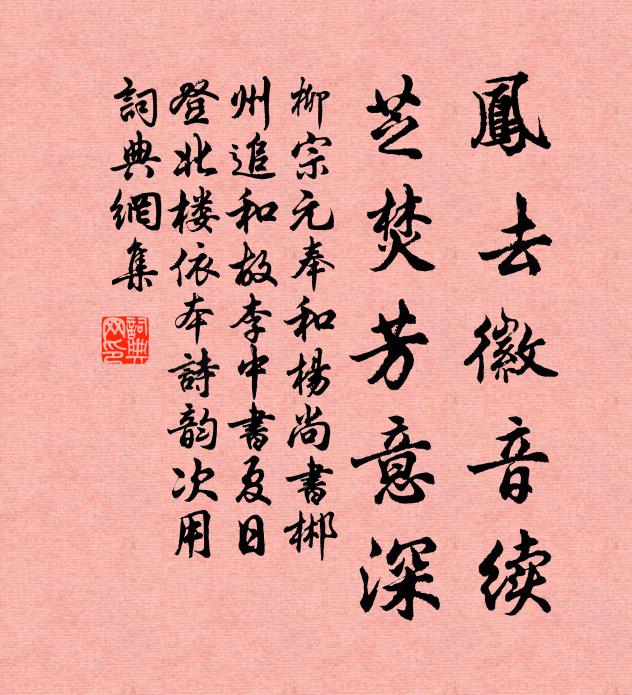 鳳去徽音续
芝焚芳意深
柳宗元奉和楊尚書郴
州追和故李中書夏日
登北楼依本詩韵次用
詞典網集
詞典网印